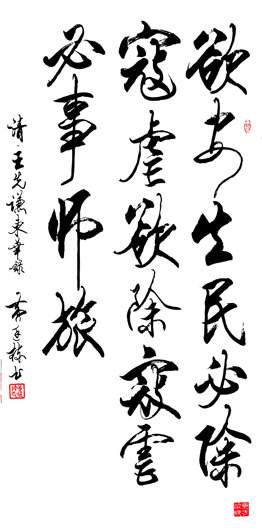 欲安生民必除
寇虐欲除寇虐
必事师旅
清·王先谦東華録
书